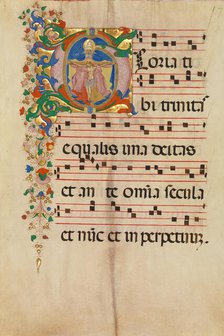 Gloria ti
bi trinitas
equalis una deitas
et an te omia secula
et nuc et in perpetuu.